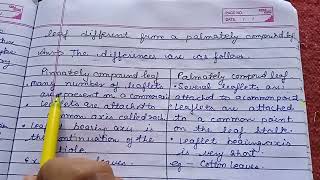 PAGE NO.
DATE: / /
leaf different from a palmately compound leaf.
Ans→ The differences are as follow.
Pinnately compound leaf
Palmately compound leaf
• many number of leaflets
• Several leaflets are
are present on a common
attached to a common point
• leaflets are attached to
• leaflets are attached
common axis called
to a common point
on the leaf stalk.
• leaflet bearing axis is
• leaflet bearing axis
the continuation of the
is very short.
eg - Cotton leaves.
leaves